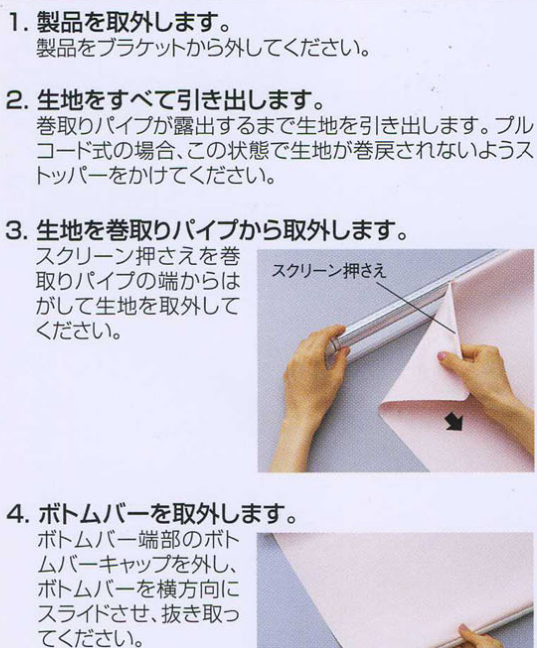 1. 製品を取外します。
製品をブラケットから外してください。
2. 生地をすべて引き出します。
巻取りパイプが露出するまで生地を引き出します。プル
コード式の場合、この状態で生地が巻戻されないようス
トッパーをかけてください。
3. 生地を巻取りパイプから取外します。
スクリーン押さえを巻
取りパイプの端からは
がして生地を取外して
ください。
スクリーン押さえ
4. ボトムバーを取外します。
ボトムバー端部のボト
ムバーキャップを外し、
ボトムバーを横方向に
スライドさせ、抜き取っ
てください。